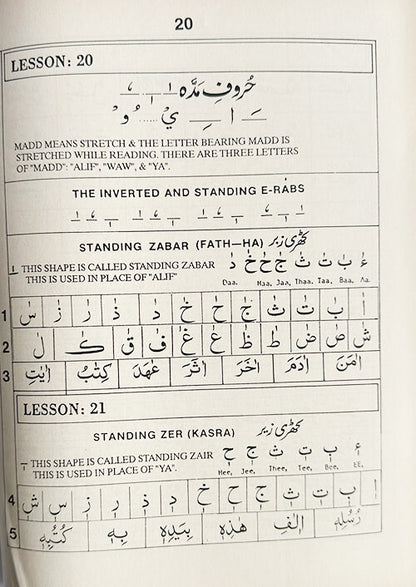 20
LESSON: 20
حُروفِ مَدَّه
MADD MEANS STRETCH & THE LETTER BEARING MADD IS
STRETCHED WHILE READING. THERE ARE THREE LETTERS
OF "MADD": "ALIF", "WAW", & "YA".
THE INVERTED AND STANDING E-RABS
STANDING ZABAR (FATH—HA) کھڑی زبر
THIS SHAPE IS CALLED STANDING ZABAR
THIS IS USED IN PLACE OF "ALIF"
ءٰ بٰ تٰ ثٰ جٰ حٰ خٰ دٰ
Daa. Haa, Jaa, Thaa. Taa, Baa. Aa.
1 اٰ بٰ تٰ ثٰ جٰ حٰ خٰ دٰ ذٰ رٰ زٰ سٰ
2 شٰ صٰ ضٰ طٰ ظٰ عٰ غٰ فٰ قٰ كٰ لٰ
3 اٰمَنَ اٰدَمَ اٰخَرَ اٰثَرَ عٰهَدَ كِتٰبُ اٰيٰتِ
LESSON: 21
STANDING ZER (KASRA) کھڑی زیر
THIS SHAPE IS CALLED STANDING ZAIR
THIS IS USED IN PLACE OF "YA".
ءٖ بٖ تٖ ثٖ جٖ حٖ
Hee, Jee, Thee, Tee, Bee, EE,
4 اٖ بٖ تٖ ثٖ جٖ حٖ خٖ دٖ ذٖ رٖ زٖ سٖ شٖ
5 رُسُلِهٖ اٖلٰفِ هٰذِهٖ بِيَدِهٖ بِهٖ كُتُبِهٖ